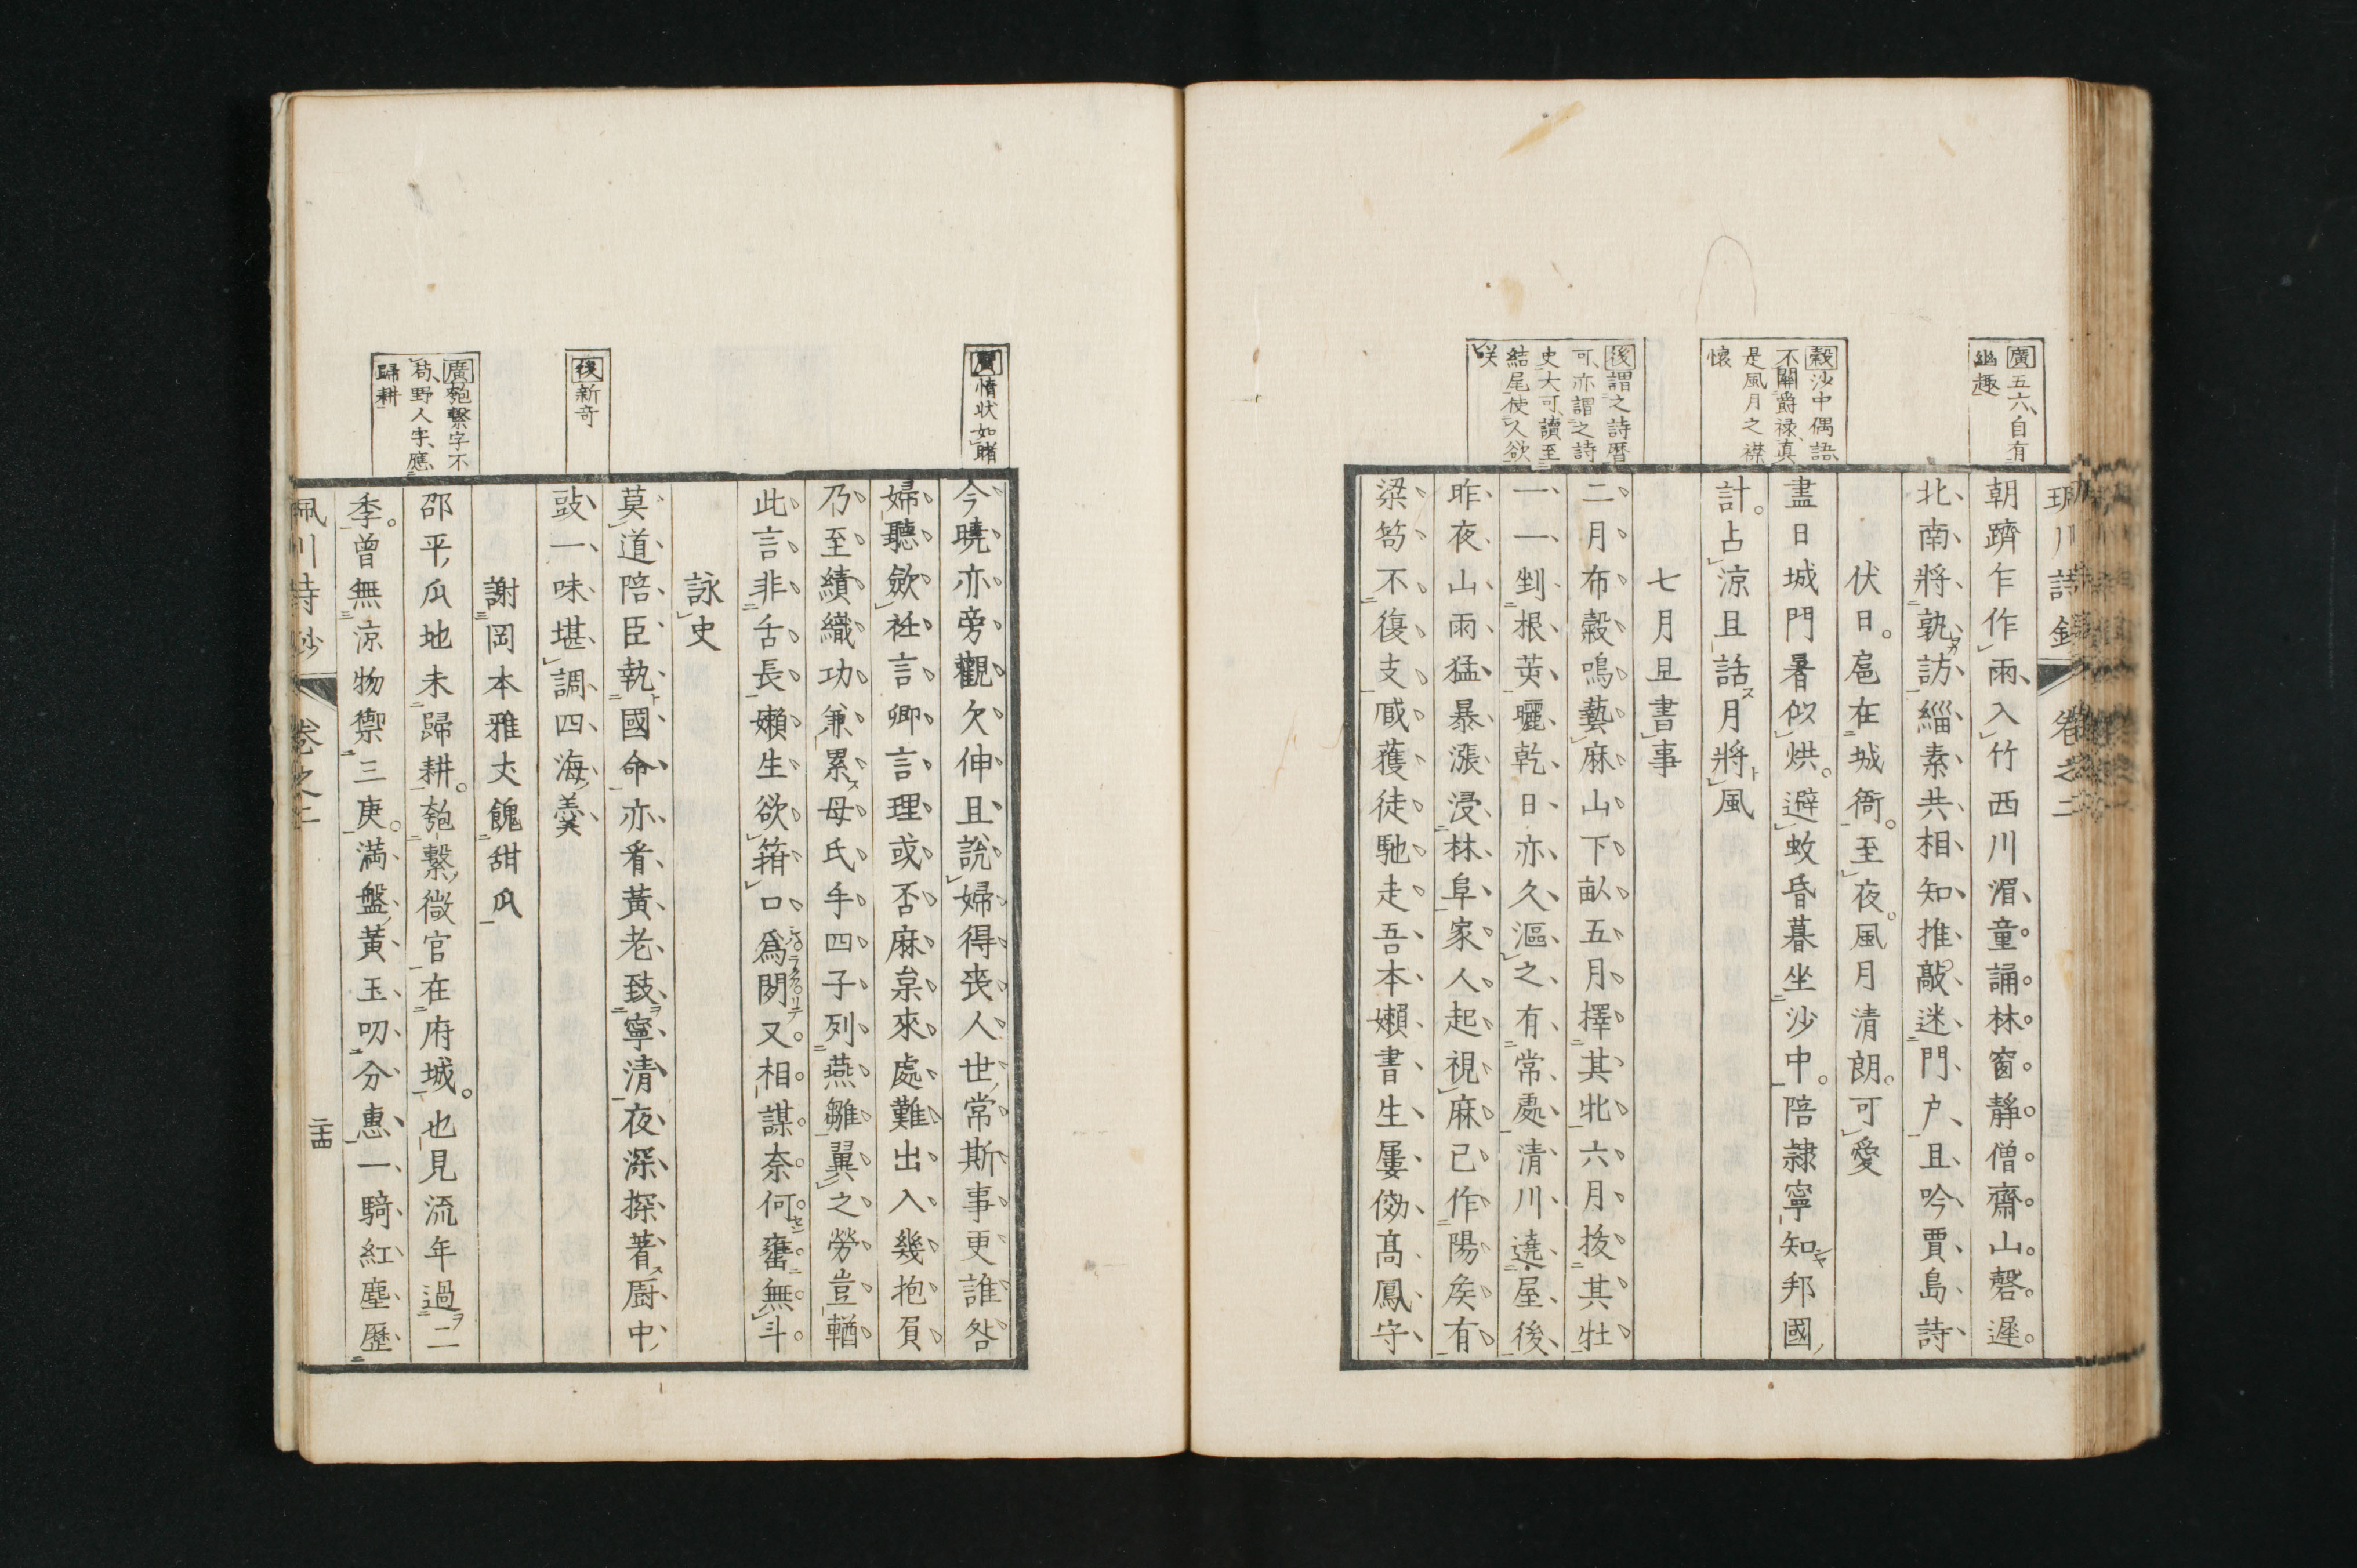 廣五六、自有
幽趣
穀沙中偶語
不關爵禄、真
是風月之襟
懷
後謂之詩曆
可、亦謂之詩
史大可、讀至
結尾使人欲
咲
朝躋乍作雨、入竹西川湄、童誦林窗靜僧齋山磬遲
北南將孰訪緇素共相知推敲迷門户且吟賈島詩
伏日。扈在城衙。至夜。風月清朗。可愛
盡日城門暑似烘。避蚊昏暮坐沙中。陪隷寧知邦國
計。占涼且話月將風
七月旦書事
二月布穀鳴藝麻山下畝五月擇其牝六月拔其牡
一一剉根莢曬乾日亦久漚之有常處清川遶屋後
昨夜山雨猛暴漲浸林阜家人起視麻已作陽矦有
梁笱不復支臧獲徒馳走吾本嬾書生屢傚髙鳳守
廣情状如睹
後新奇
廣匏繫字不
苟、野人字、應
歸耕
今曉亦旁觀欠伸且説婦得喪人世常斯事更誰咎
婦聽斂衽言卿言理或否麻枲來處難出入幾抱負
乃至績織功兼累母氏手四子列燕雛翼之勞豈輶
此言非舌長嬾生欲箝口爲閧又相謀奈何罋無斗
詠史
莫道陪臣執國命亦看黃老致寧清夜深探著厨中
豉一味堪調四海羹
謝岡本雅夫餽甜瓜
邵平瓜地未歸耕。匏繫微官在府城。也見流年過二
季。曾無涼物禦三庚。満盤黃玉叨分惠一騎紅塵歷
卷之二
二十四